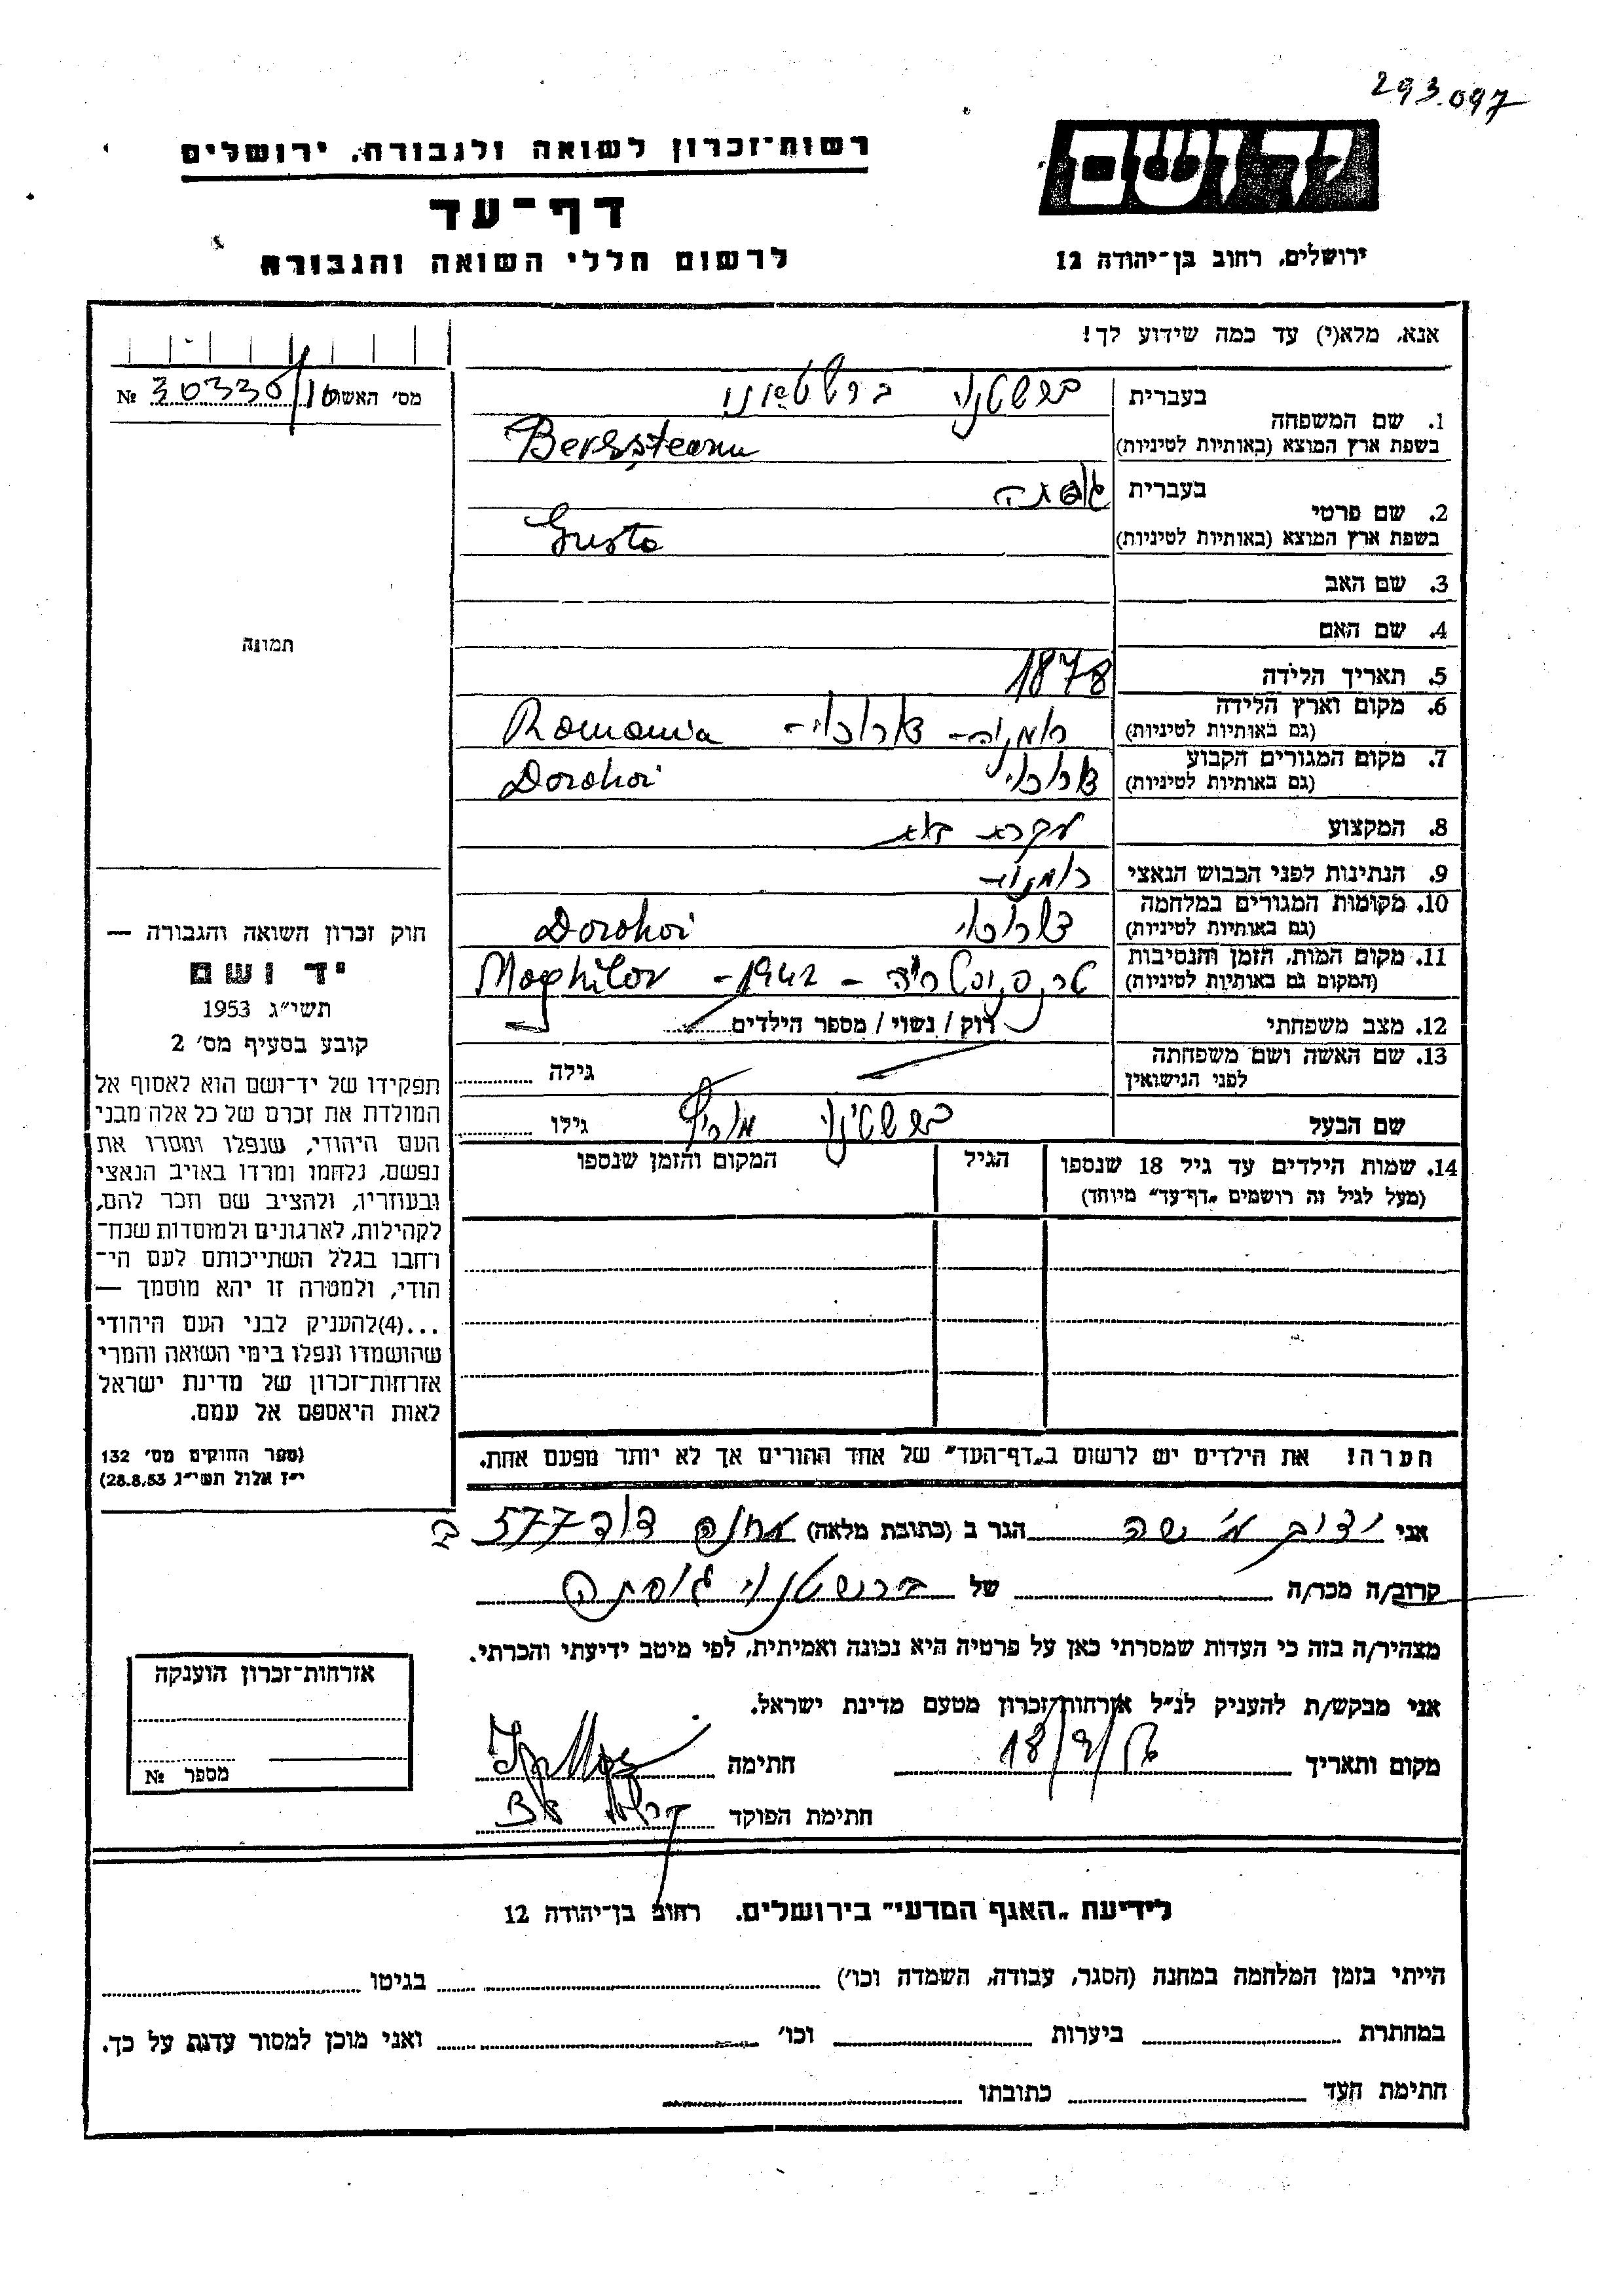 293.097
רשות־זכרון לשואה ולגבורה, ירושלים
יד ושם
דף־עד
לרשום חללי השואה והגבורה
ירושלים, רחוב בן־יהודה 12
אנא, מלא(י) עד כמה שידוע לך!
מס׳ האשה 30330/16 №
בעברית ברשטאנו
1. שם המשפחה
בשפת ארץ המוצא (באותיות לטיניות) Bersșteanu
בעברית גוסתה
2. שם פרטי
בשפת ארץ המוצא (באותיות לטיניות) Gusta
3. שם האב
4. שם האם
תמונה
5. תאריך הלידה 1878
6. מקום וארץ הלידה
(גם באותיות לטיניות) רומניה – דורוהוי – Romania
7. מקום המגורים הקבוע
(גם באותיות לטיניות) דורוהוי Dorohoi
8. המקצוע עקרת בית
9. הנתינות לפני הכבוש הנאצי רומניה
10. מקומות המגורים במלחמה
(גם באותיות לטיניות) דורוהוי Dorohoi
11. מקום המות, הזמן והנסיבות
(המקום גם באותיות לטיניות) טרנסניסטריה – 1942 – Moghilov
12. מצב משפחתי רוק / נשוי / מספר הילדים
13. שם האשה ושם משפחתה
לפני הנישואין גילה
שם הבעל גילו
14. שמות הילדים עד גיל 18 שנספו הגיל המקום והזמן שנספו
(מעל לגיל זה רושמים „דף־עד״ מיוחד)
חוק זכרון השואה והגבורה —
יד ושם
תשי״ג 1953
קובע בסעיף מס׳ 2
תפקידו של יד־ושם הוא לאסוף אל
המולדת את זכרם של כל אלה מבני
העם היהודי, שנפלו ומסרו את
נפשם, נלחמו ומרדו באויב הנאצי
ובעוזריו, ולהציב שם וזכר להם,
לקהילות, לארגונים ולמוסדות שנח־
רחבו בגלל השתייכותם לעם הי־
הודי, ולמטרה זו יהא מוסמך —
...(4)להעניק לבני העם היהודי
שהושמדו ונפלו בימי השואה והמרי
אזרחות־זכרון של מדינת ישראל
לאות היאספם אל עמם.
(ספר החוקים מס׳ 132
י״ז אלול תשי״ג 28.8.53)
הערה! את הילדים יש לרשום ב„דף־העד״ של אחד ההורים אך לא יותר מפעם אחת.
אני הגר ב (כתובת מלאה) מחנה דוד 577 ב
קרוב/ה מכר/ה של ברשטנוי גוסתה
מצהיר/ה בזה כי העדות שמסרתי כאן על פרטיה היא נכונה ואמיתית, לפי מיטב ידיעתי והכרתי.
אני מבקש/ת להעניק לנ״ל אזרחות זכרון מטעם מדינת ישראל.
מקום ותאריך 18/9/56 חתימה
חתימת הפוקד
אזרחות־זכרון הוענקה
מספר №
לידיעת „האגף המדעי״ בירושלים. רחוב בן־יהודה 12
הייתי בזמן המלחמה במחנה (הסגר, עבודה, השמדה וכו׳) בגיטו
במחתרת ביערות וכו׳ ואני מוכן למסור עדות על כך.
חתימת העד כתובתו